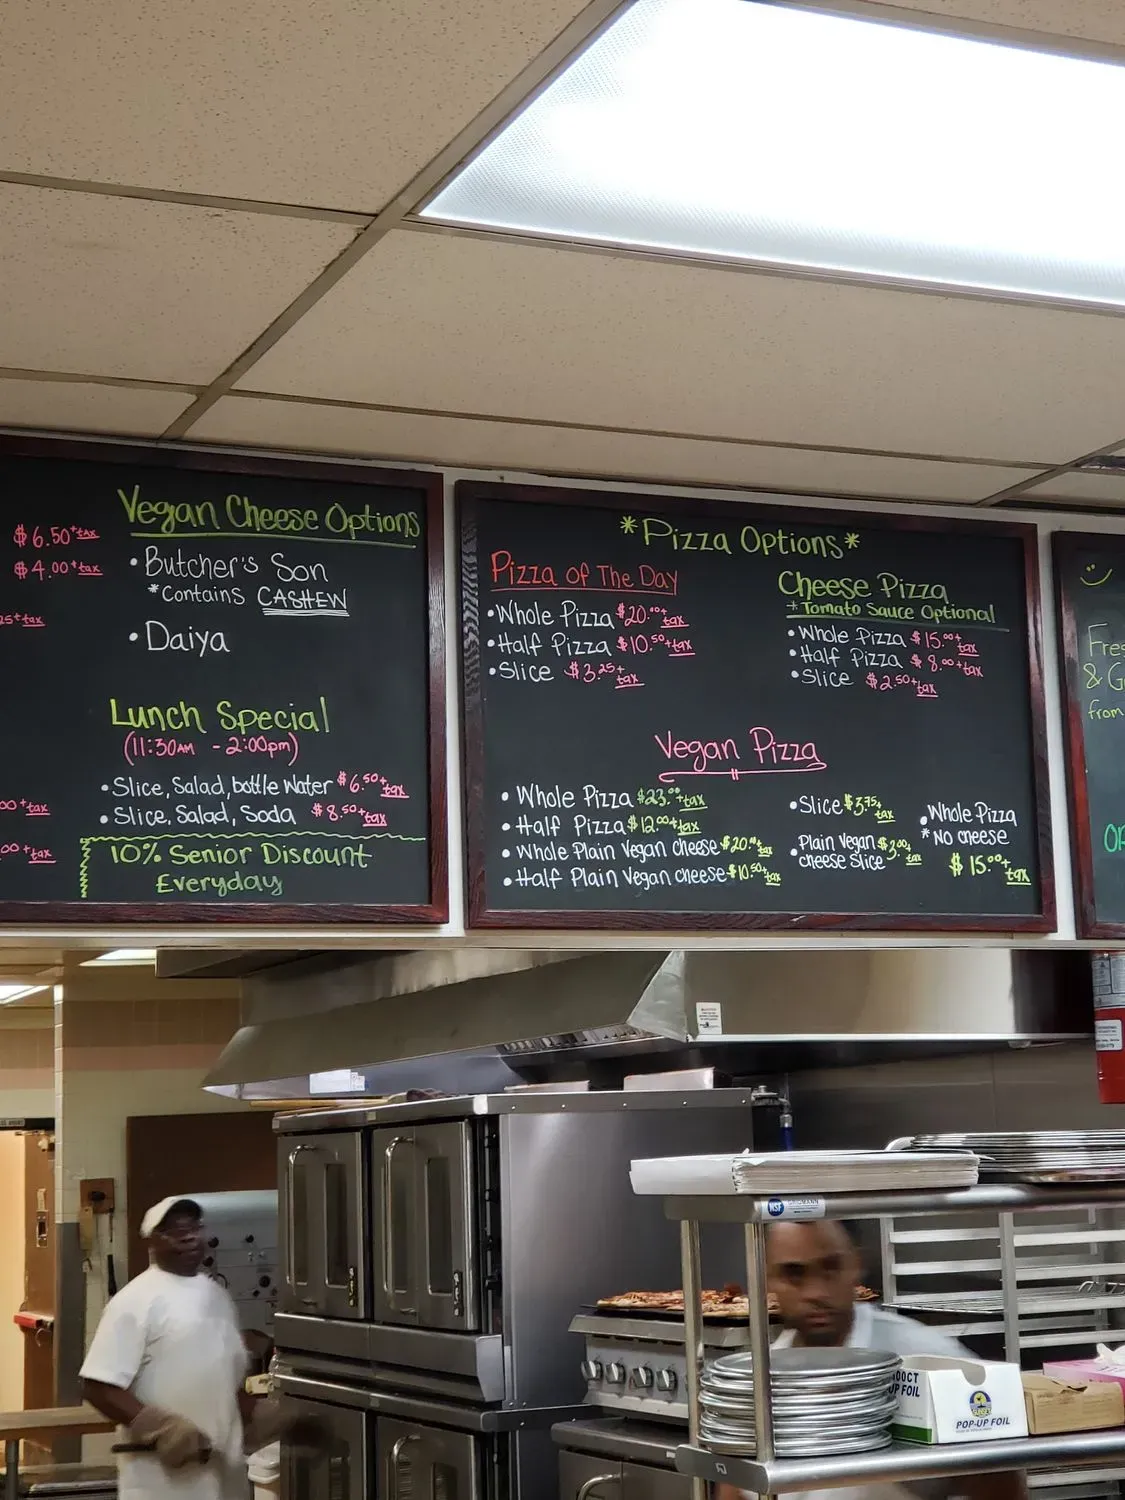 $6.50+tax
$4.00+tax
25+tax
00+tax
00+tax
Vegan Cheese Options
• Butcher's Son
*contains CASHEW
• Daiya
Lunch Special
(11:30AM - 2:00pm)
• Slice, Salad, bottle water $6.50+tax
• Slice, Salad, Soda $8.50+tax
10% Senior Discount
Everyday
*Pizza Options*
Pizza of The Day
• Whole Pizza $20.00+tax
• Half Pizza $10.50+tax
• Slice $3.25+tax
Cheese Pizza
*Tomato Sauce Optional
• Whole Pizza $15.00+tax
• Half Pizza $8.00+tax
• Slice $2.50+tax
Vegan Pizza
• Whole Pizza $23.00+tax
• Half Pizza $12.00+tax
• Whole Plain Vegan cheese $20.00+tax
• Half Plain Vegan cheese $10.50+tax
• Slice $3.75+tax
• Plain Vegan
cheese Slice $3.00+tax
• Whole Pizza
* No cheese
$15.00+tax
Fre
& G
from
OR
NSF
POP-UP FOIL
00CT
UP FOIL